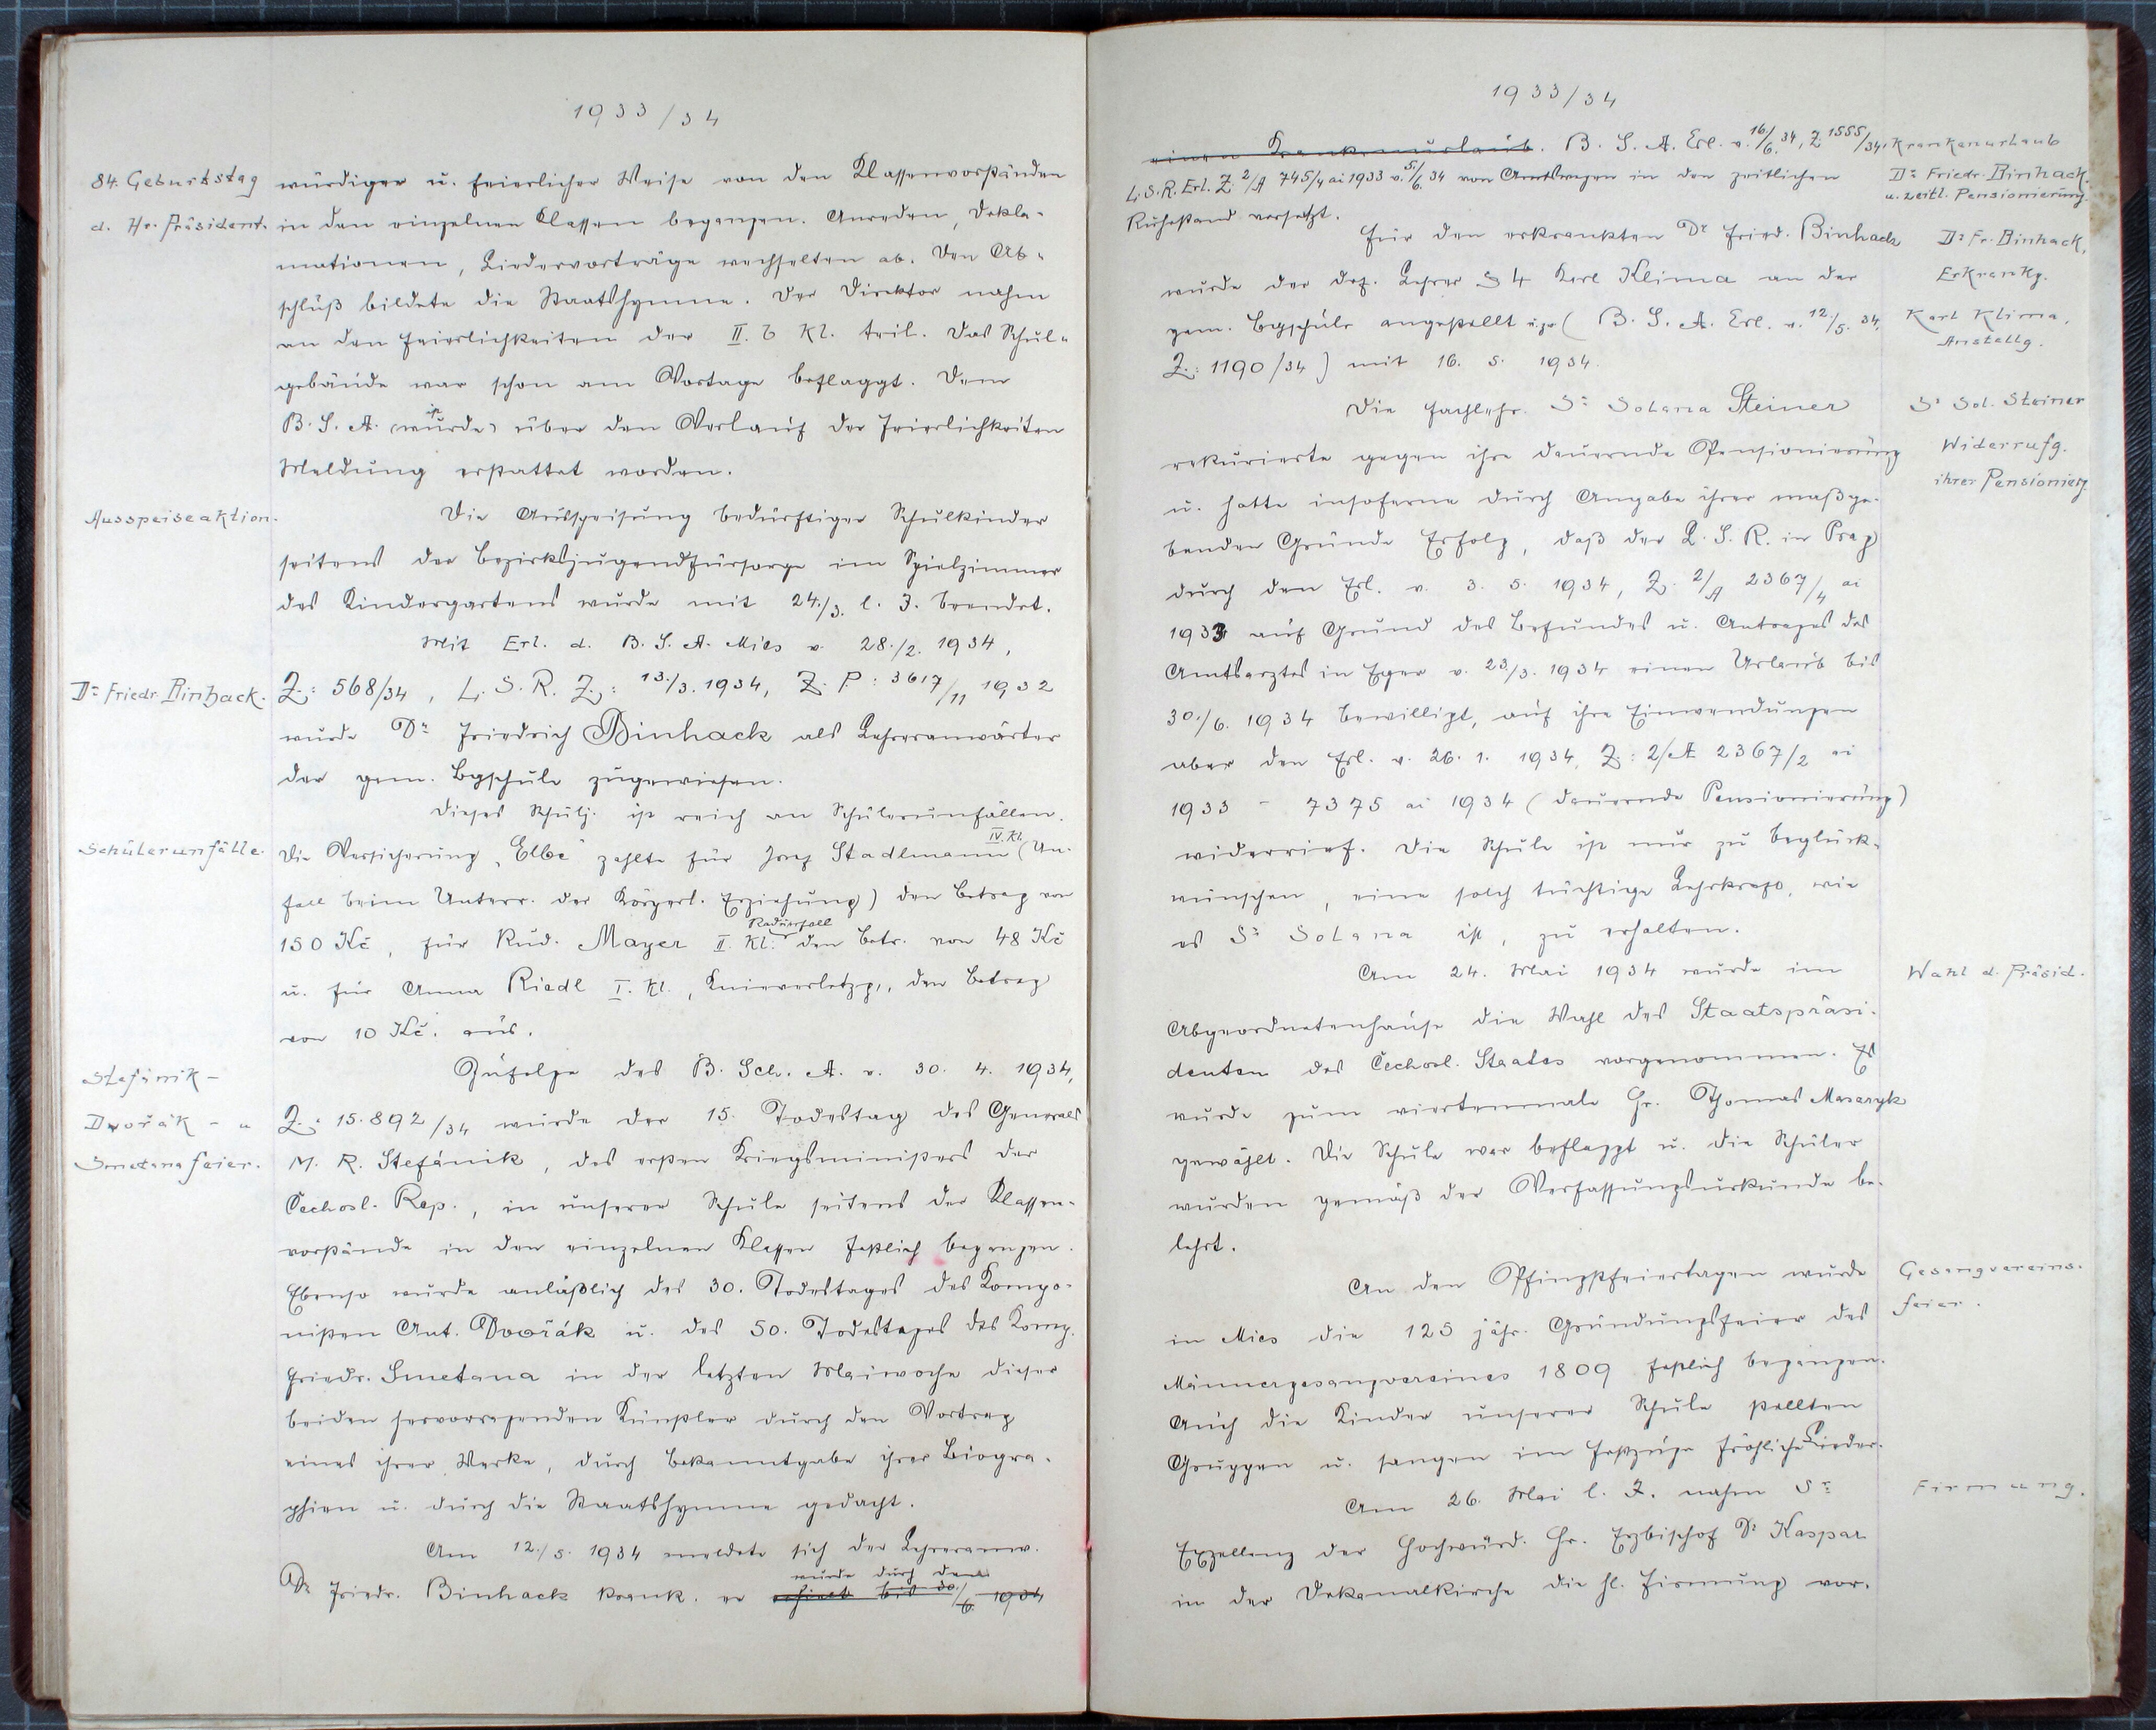 1933/34
84. Geburtstag
d. Hr. Präsident.
würdiger u. feierlicher Weise von den Klassenvorständen
in den einzelnen Klassen begangen. Anreden, Dekla-
mationen, Liedervorträge wechselten ab. Den Ab-
schluß bildete die Staatshymne. Der Direktor nahm
an den Feierlichkeiten der II. b Kl. teil. Das Schul-
gebäude war schon am Vortage beflaggt. Dem
B. S. A. (wurde) ist über den Verlauf der Feierlichkeiten
Meldung erstattet worden.
Ausspeiseaktion.
Die Ausspeisung bedürftiger Schulkinder
seitens der Bezirksjugendfürsorge im Spielzimmer
des Kindergartens wurde mit 24./3. l. J. beendet.
Mit Erl. d. B. S. A. Mies v. 28./2. 1934,
Dr Friedr. Binhack.
Z: 568/34, L. S. R. Z.: 13./3. 1934, Z. P: 3617/11 1932
wurde Dr Friedrich Binhack als Lehreranwärter
der gem. Bgschule zugewiesen.
Dieses Schulj. ist reich an Schülerunfällen.
Schülerunfälle.
Die Versicherung „Elbe" zahlte für Josef Stadlmann IV. Kl. (Un-
fall beim Unterr. der körperl. Erziehung) den Betrag von
150 Kč, für Rud. Mayer II. Kl. Radunfall den Betr. von 48 Kč
u. für Anna Riedl I. Kl., Knieverletzg., den Betrag
von 10 Kč. aus.
Stefánik-
Dvořák- u
Smetanafeier.
Zufolge des B. Sch. A. v. 30. 4. 1934,
Z: 15.892/34 wurde der 15. Todestag des Generals
M. R. Stefánik, des ersten Kriegsministers der
Čechosl. Rep., in unserer Schule seitens der Klassen-
vorstände in den einzelnen Klassen festlich begangen.
Ebenso wurde anläßlich des 30. Todestages des Kompo-
nisten Ant. Dvořák u. des 50. Todestages des Komp.
Friedr. Smetana in der letzten Maiwoche dieser
beiden hervorragenden Künstler durch den Vortrag
eines ihrer Werke, durch Bekanntgabe ihrer Biogra-
phien u. durch die Staatshymne gedacht.
Am 12./5. 1934 meldete sich der Lehreranw.
wurde durch den
Dr Friedr. Binhack krank. er erhielt bis 30./6. 1934
1933/34
einen Krankenurlaub. B. S. A. Erl. v. 16./6. 34, Z 1555/34.
L. S. R. Erl. Z. 2/A 745/4 ai 1933 v. 5/6. 34 von Amtswegen in den zeitlichen
Ruhestand versetzt.
Krankenurlaub
Dr Friedr. Binhack.
u. zeitl. Pensionierung.
Für den erkrankten Dr Fried. Binhack
wurde der def. Lehrer S 4 Karl Klima an der
gem. Bgschule angestellt u. zw (B. S. A. Erl. v. 12./5. 34,
Z.: 1190/34) mit 16. 5. 1934.
Dr Fr. Binhack,
Erkrankg.
Karl Klima,
Anstellg.
Die Fachlehr. Sr Solana Steiner
rekurierte gegen ihre dauernde Pensionierung
u. hatte insoferne durch Angabe ihrer maßge-
benden Gründe Erfolg, daß der L. S. R. in Prag
durch den Erl. v. 3. 5. 1934, Z. 2/A 2367/4 ai
1933 auf Grund des Befundes u. Antrages des
Amtsarztes in Eger v. 23./3. 1934 einen Urlaub bis
30./6. 1934 bewilligt, auf ihre Einwendungen
aber den Erl. v. 26. 1. 1934, Z: 2/A 2367/2 ai
1933 - 7375 ai 1934 (dauernde Pensionierung)
widerrief. Die Schule ist nur zu beglück-
wünschen, eine solch tüchtige Lehrkraft, wie
es Sr Solana ist, zu erhalten.
Sr Sol. Steiner
Widerrufg.
ihrer Pensionierg.
Am 24. Mai 1934 wurde im
Abgeordnetenhause die Wahl des Staatspräsi-
denten des Čechosl. Staates vorgenommen. Es
wurde zum viertenmale Hr. Thomas Masaryk
gewählt. Die Schule war beflaggt u. die Schüler
wurden gemäß der Verfassungsurkunde be-
lehrt.
Wahl d. Präsid.
An den Pfingstfeiertagen wurde
in Mies die 125 jähr. Gründungsfeier des
Männergesangvereines 1809 festlich begangen.
Auch die Kinder unserer Schule stellten
Gruppen u. sangen im Festzuge fröhliche Lieder.
Gesangvereins-
feier.
Am 26. Mai l. J. nahm Sr
Exzellenz der Hochwürd. Hr. Erzbischof Dr Kaspar
in der Dekanalkirche die hl. Firmung vor.
Firmung.